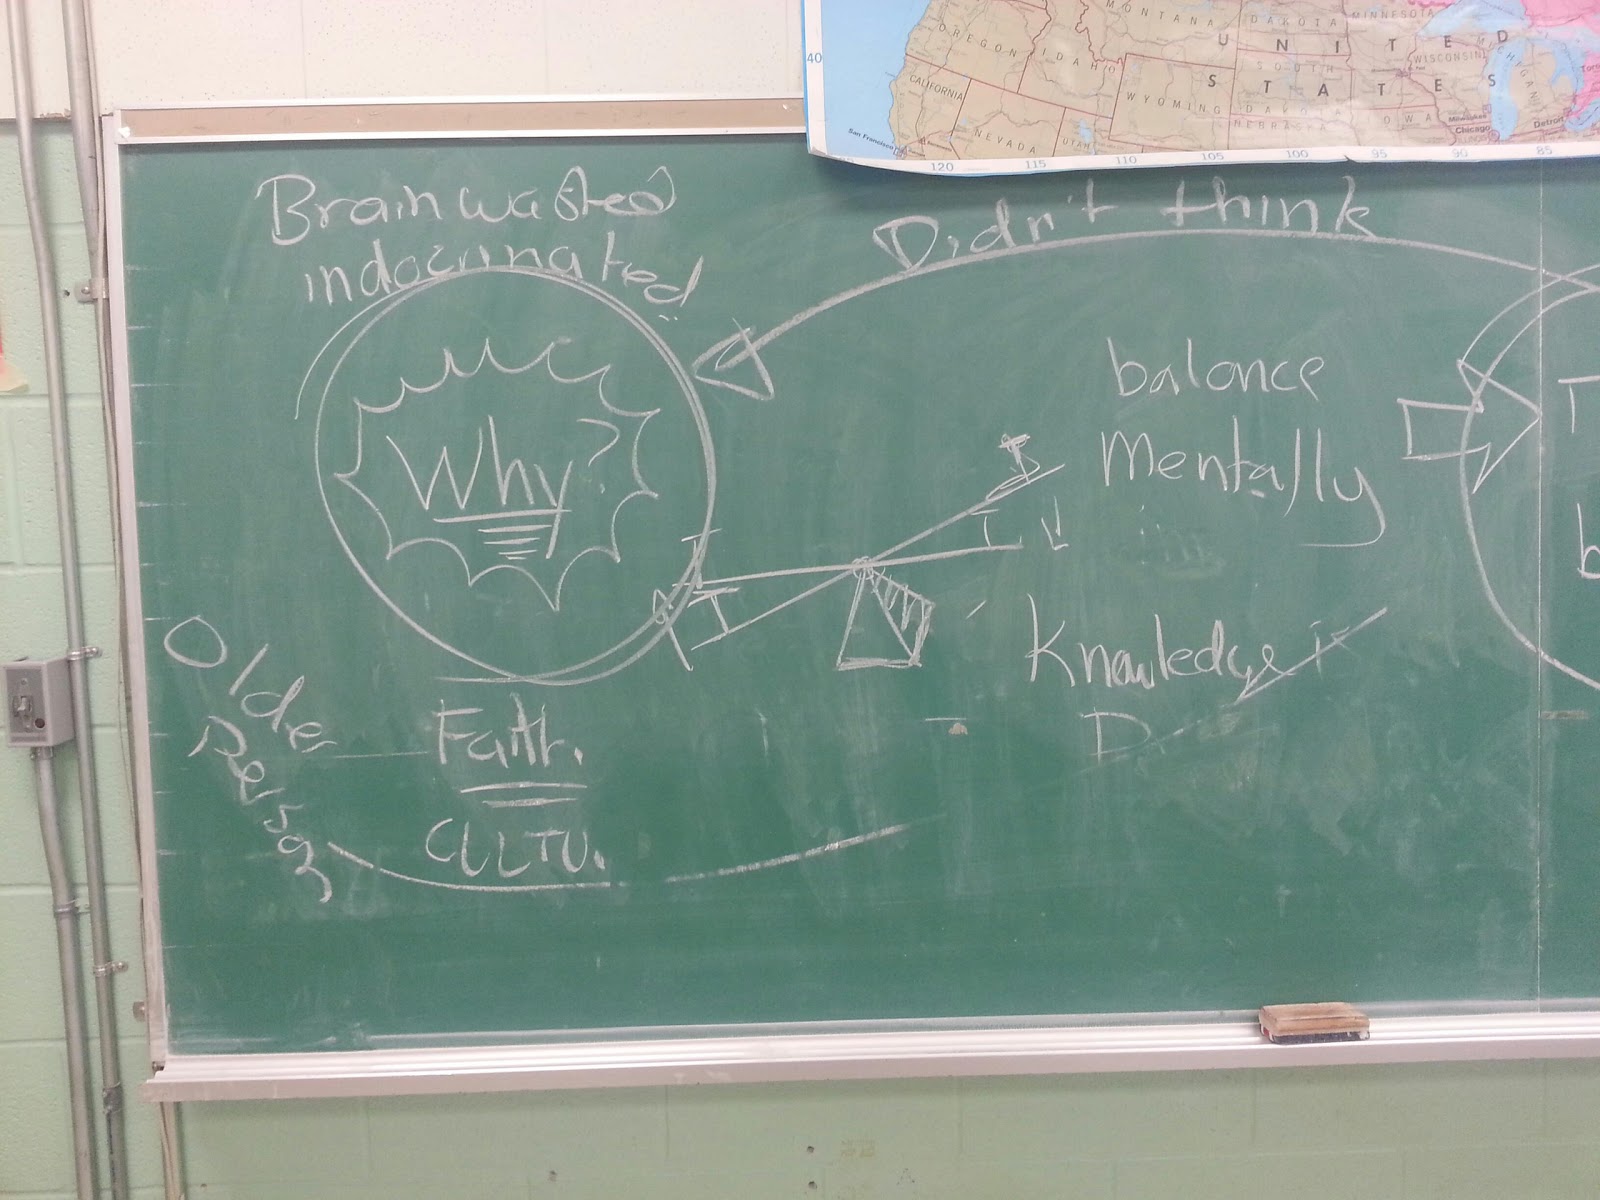 40
MONTANA
DAKOTA
MINNESOTA
OREGON
IDAHO
UNITED
STATES
WISCONSIN
MICHIGAN
SOUTH
CALIFORNIA
WYOMING
DAKOTA
NEBRASKA
IOWA
Milwaukee
Chicago
Detroit
San Francisco
NEVADA
UTAH
120 115 110 105 100 95 90 85
Brainwashed
indocrinated
Didn't think
Why?
balance
Mentally
Knowledge is
D
Older
Person
Faith.
CULTU.